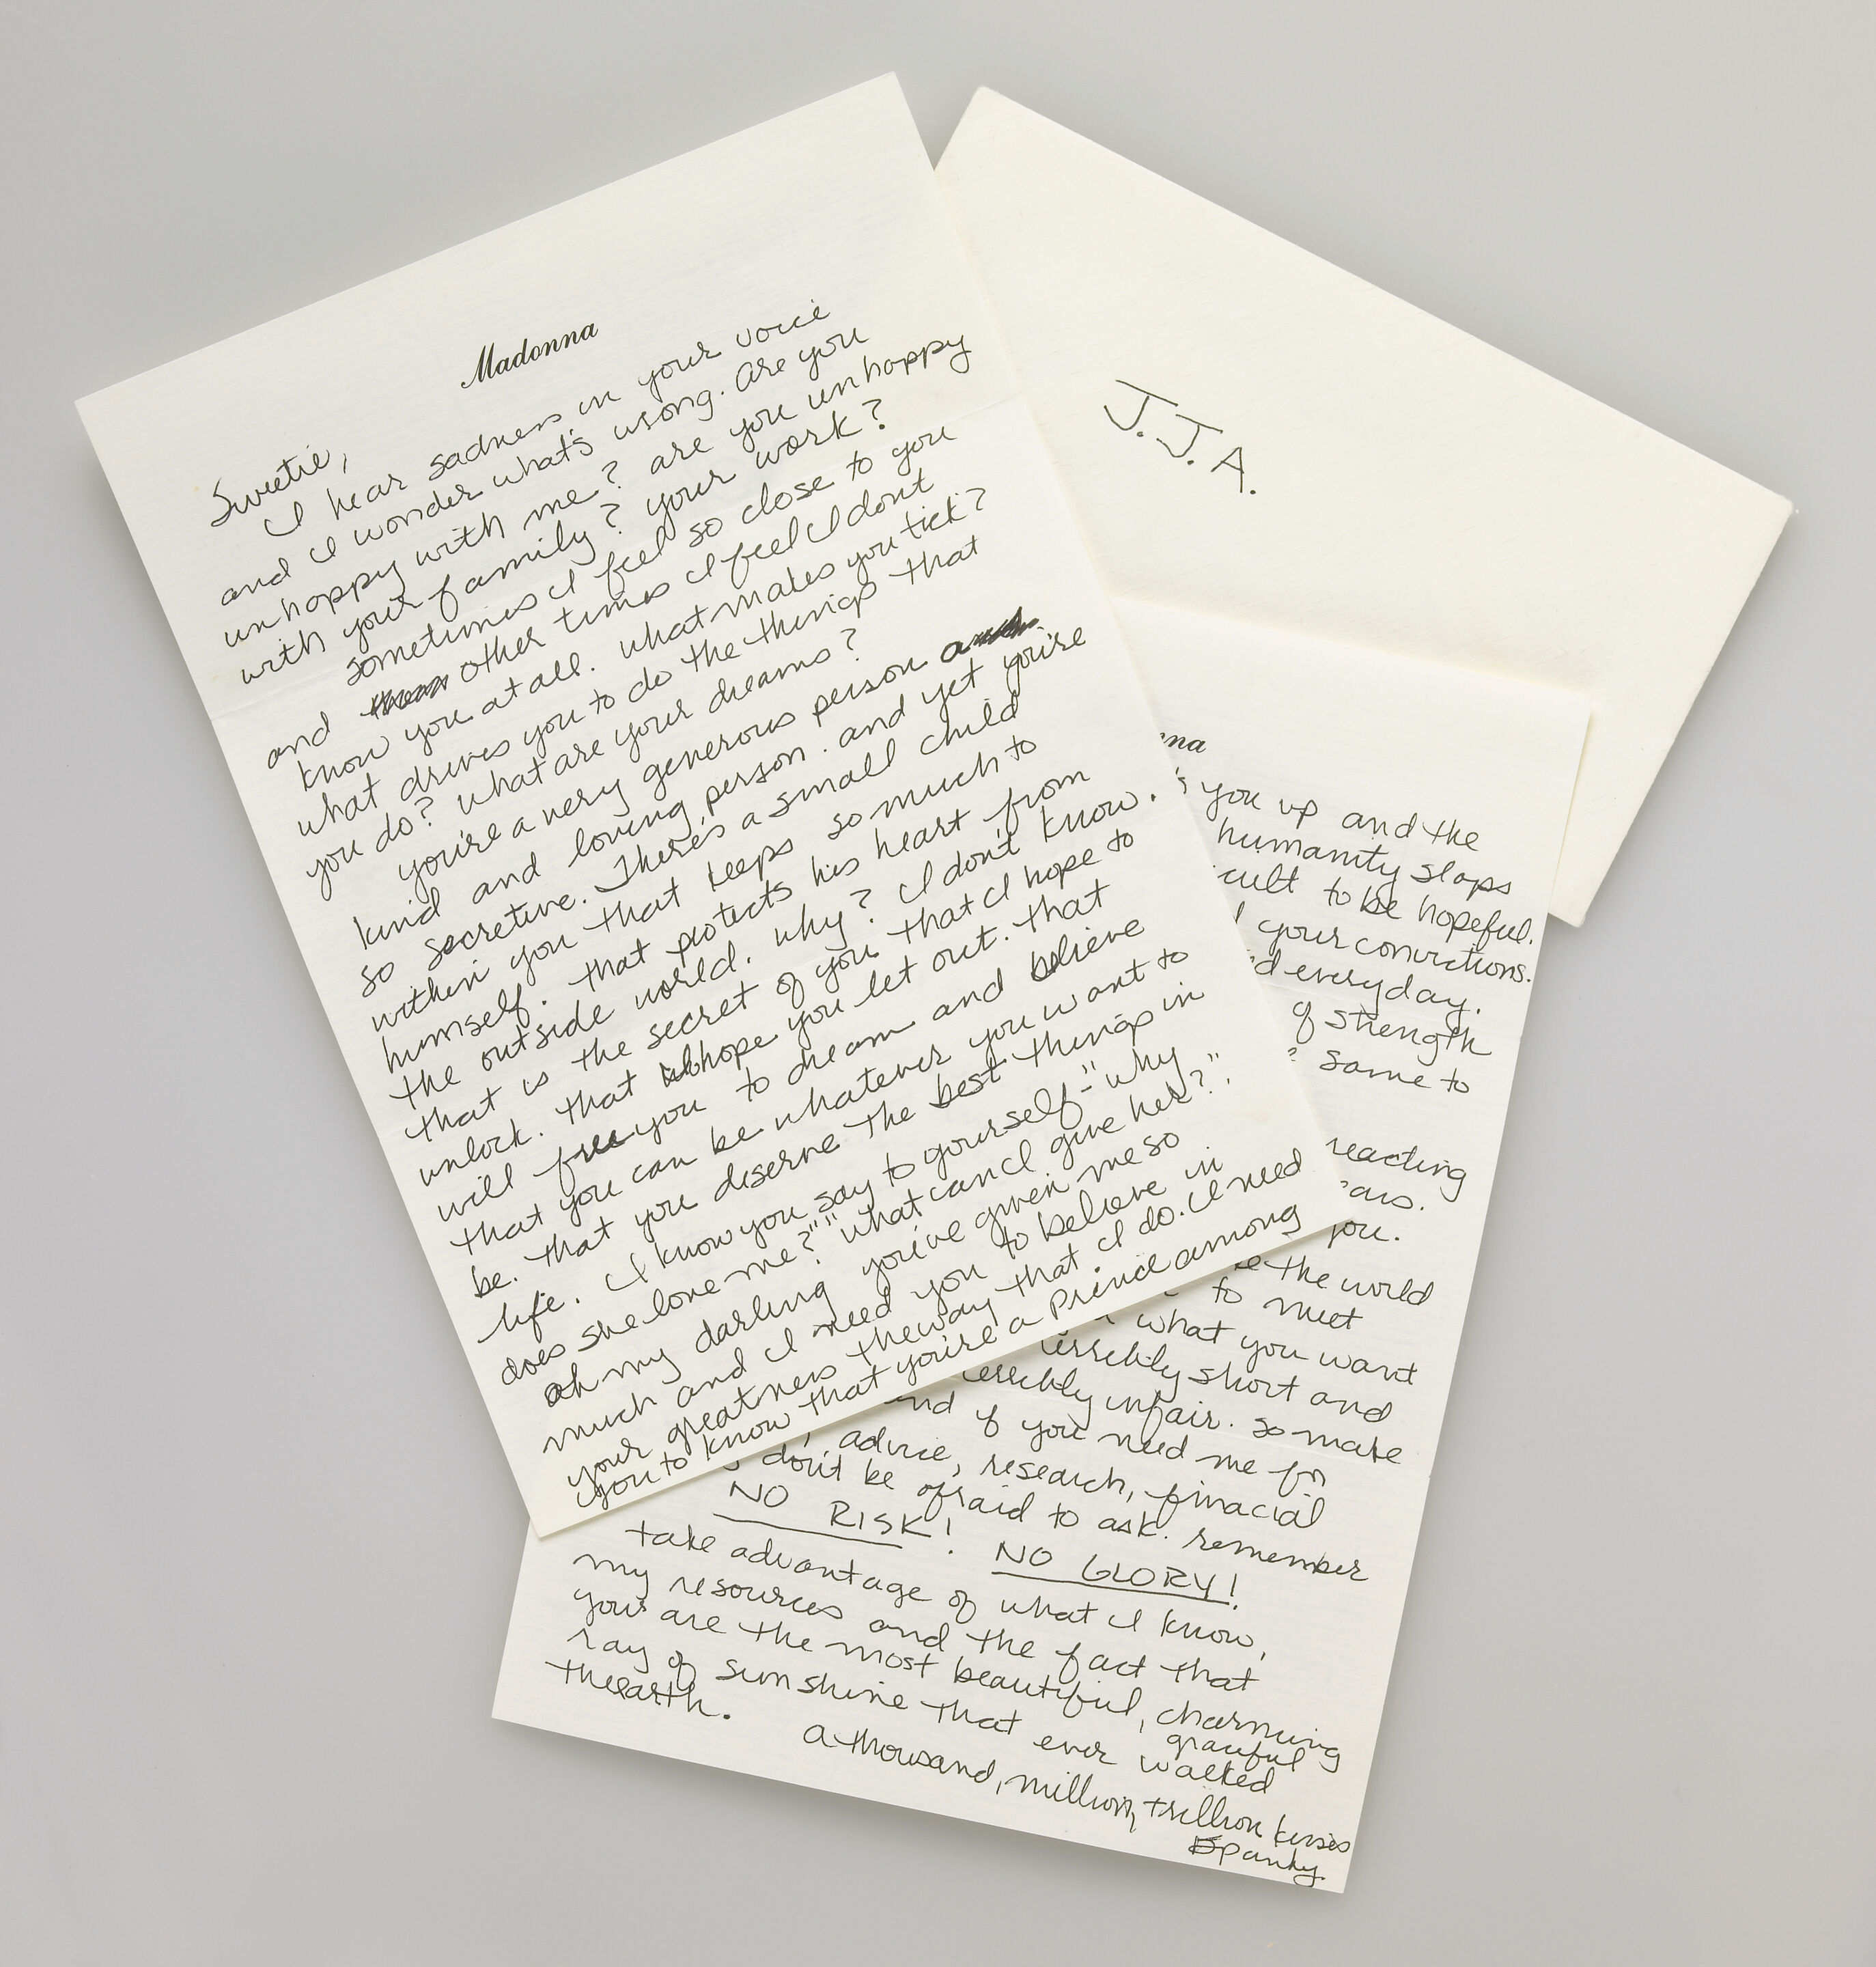 Madonna
Sweetie,
I hear sadness in your voice
and I wonder what's wrong. Are you
unhappy with me? are you unhappy
with your family? your work?
sometimes I feel so close to you
and other times I feel I dont
know you at all. what makes you tick?
what drives you to do the things that
you do? what are your dreams?
you're a very generous person
kind and loving person. and yet you're
so secretive. There's a small child
within you that keeps so much to
himself. that protects his heart from
the outside world. why? I don't know.
that is the secret of you that I hope to
unlock. that I hope you let out. that
will free you to dream and believe
that you can be whatever you want to
be. that you deserve the best things in
life. I know you say to yourself - "why
does she love me?" "what can I give her?".
oh my darling you've given me so
much and I need you to believe in
your greatness the way that I do. I need
you to know that you're a prince among
J.J.A.
nna
's you up and the
humanity slaps
cult to be hopeful.
your convictions.
d everyday.
of strength
same to
reacting
ars.
you.
e the world
to meet
what you want
errebly short and
errebly unfair. so make
and if you need me for
, advice, research, finacial
don't be afraid to ask. remember
NO RISK! NO GLORY!
take advantage of what I know,
my resources and the fact that
you are the most beautiful, charming
graceful
ray of sunshine that ever walked
the earth.
a thousand, million, trillion kisses
Spanky.